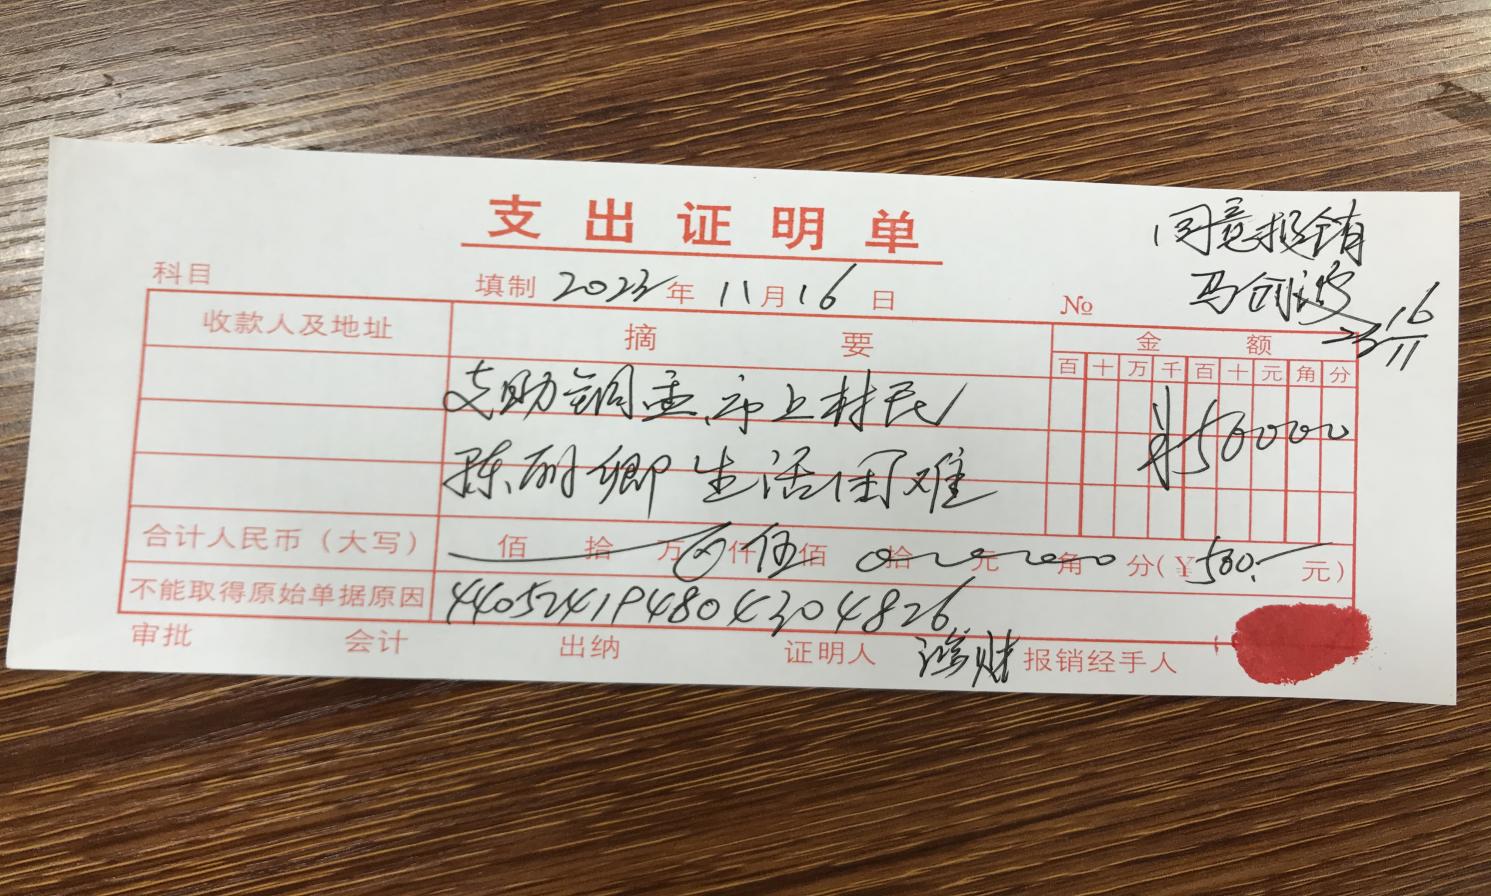 支出证明单
同意报销
马创波
23 16/11
科目 填制 2023年 11月16日 №
收款人及地址 摘要 金额
百十万千百十元角分
支助铜盂市上村民 ¥50000
陈丽卿生活困难
合计人民币（大写） 佰拾万仟伍佰0拾0元0角0分(¥500.-元)
不能取得原始单据原因 440524194804304826
审批 会计 出纳 证明人 报销经手人